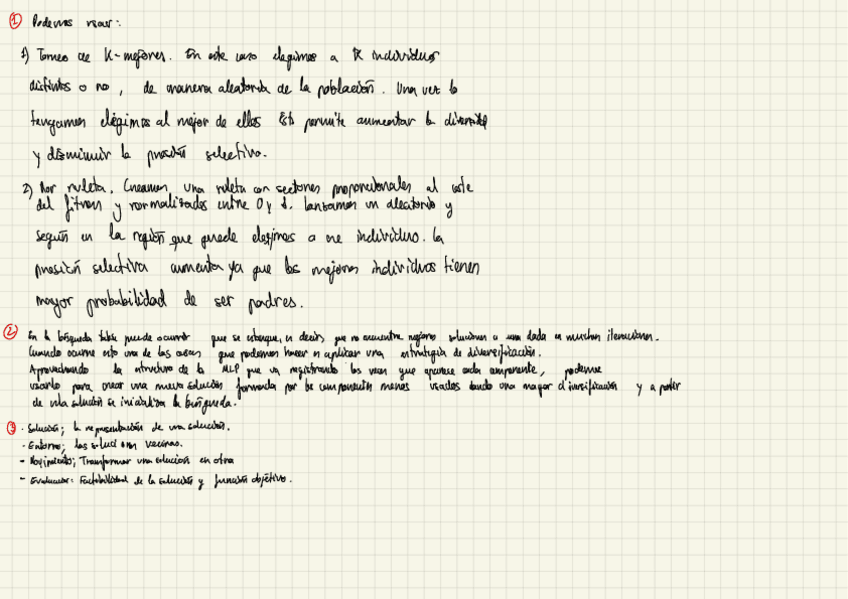 ① Podemos usar:
1) Torneo de K-mejores. En este caso elegimos a K individuos
distintos o no, de manera aleatoria de la población. Una vez lo
tengamos elegimos al mejor de ellos Esto permite aumentar la diversidad
y disminuir la presión selectiva.
2) Por ruleta. Creamos una ruleta con sectores proporcionales al
del fitness y normalizados entre 0 y 1. lanzamos un aleatorio y
según en la región que quede elegimos a ese individuo. la
presión selectiva aumenta ya que los mejores individuos tienen
mayor probabilidad de ser padres.
② En la búsqueda tabú puede ocurrir que se estanque, es decir, que no encuentre mejores soluciones a una dada en muchas iteraciones.
Cuando ocurre esto una de las cosas que podemos hacer es aplicar una estrategia de diversificación.
Aprovechando la estructura de la MLP que va registrando las veces que aparece cada componente, podemos
usarlo para crear una nueva solución formada por los componentes menos usados dando una mayor diversificación y a partir
de esta solución se inicializa la búsqueda.
③ · Solución; la representación de una solución.
· Entorno; las soluciones vecinas.
- Movimiento; Transformar una solución en otra
- Evaluación: Factibilidad de la solución y función objetivo.